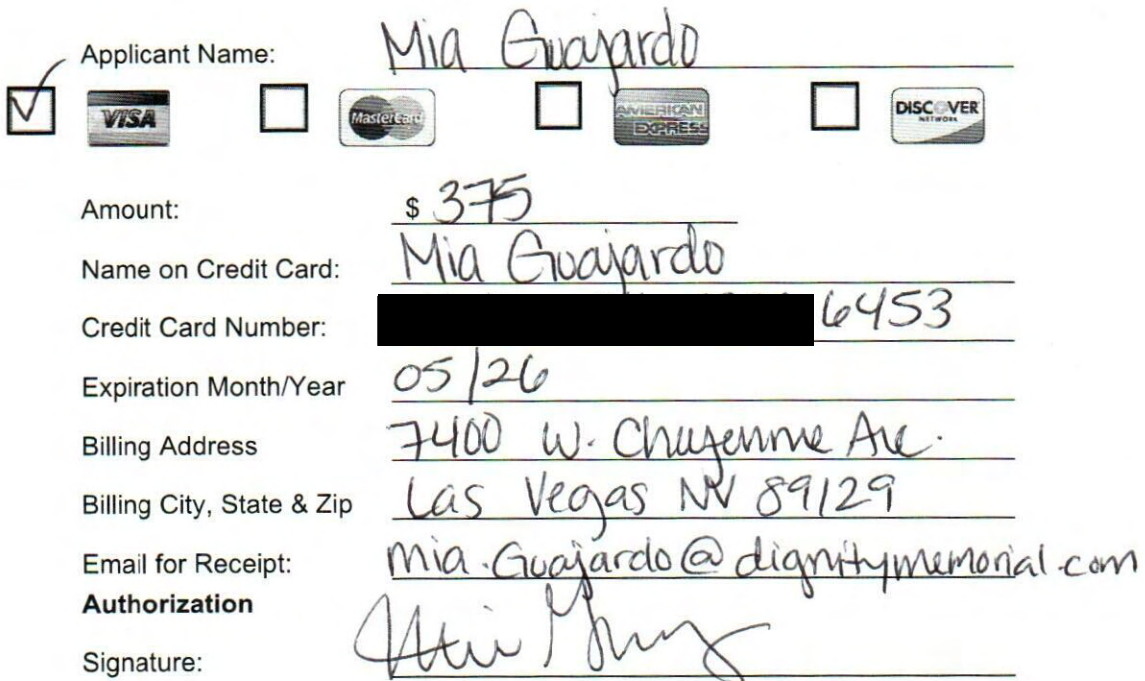 Applicant Name: Mia Guajardo
VISA MasterCard AMERICAN EXPRESS DISCOVER NETWORK
Amount: $ 375
Name on Credit Card: Mia Guajardo
Credit Card Number: 6453
Expiration Month/Year 05/26
Billing Address 7400 W. Chuyenne Ave.
Billing City, State & Zip Las Vegas NV 89129
Email for Receipt: Mia.Guajardo@dignitymemorial.com
Authorization
Signature: